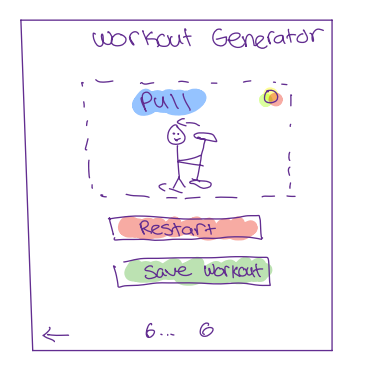 Workout Generator
Pull
Restart
Save Workout
← 6... 6